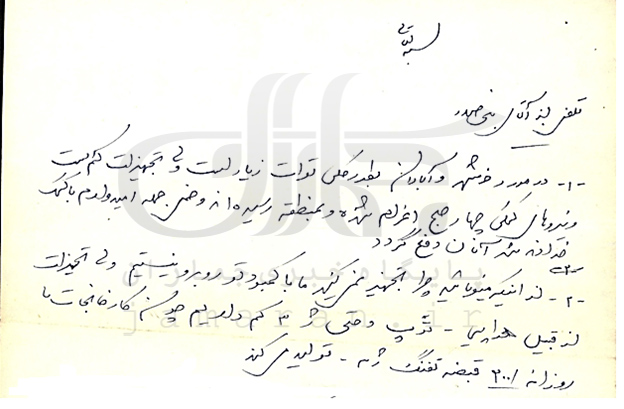 بسمه تعالی
تلفن از آقای بنی صدر
-۱- در مورد خرمشهر و آبادان بطور کلی قوات زیاد است ولی تجهیزات کم است
و نیروهای کمکی چهار صبح اعزام شده و بمنطقه رسیده اند و ضمن حمله امیدوارم با کمک
خداوند شر آنان دفع گردد
-۲- از اینکه میفرمائید چرا تجهیز نمی کنید ما با کمبود نفر روبرو نیستیم ولی تجهیزات
از قبیل هواپیما - توپ و حتی ژ ۳ کم داریم چون کارخانجات ما
روزانه ۳۰۰ قبضه تفنگ ژ ۳ - تولید می کند
پایگاه خبری جماران
jamaran.ir